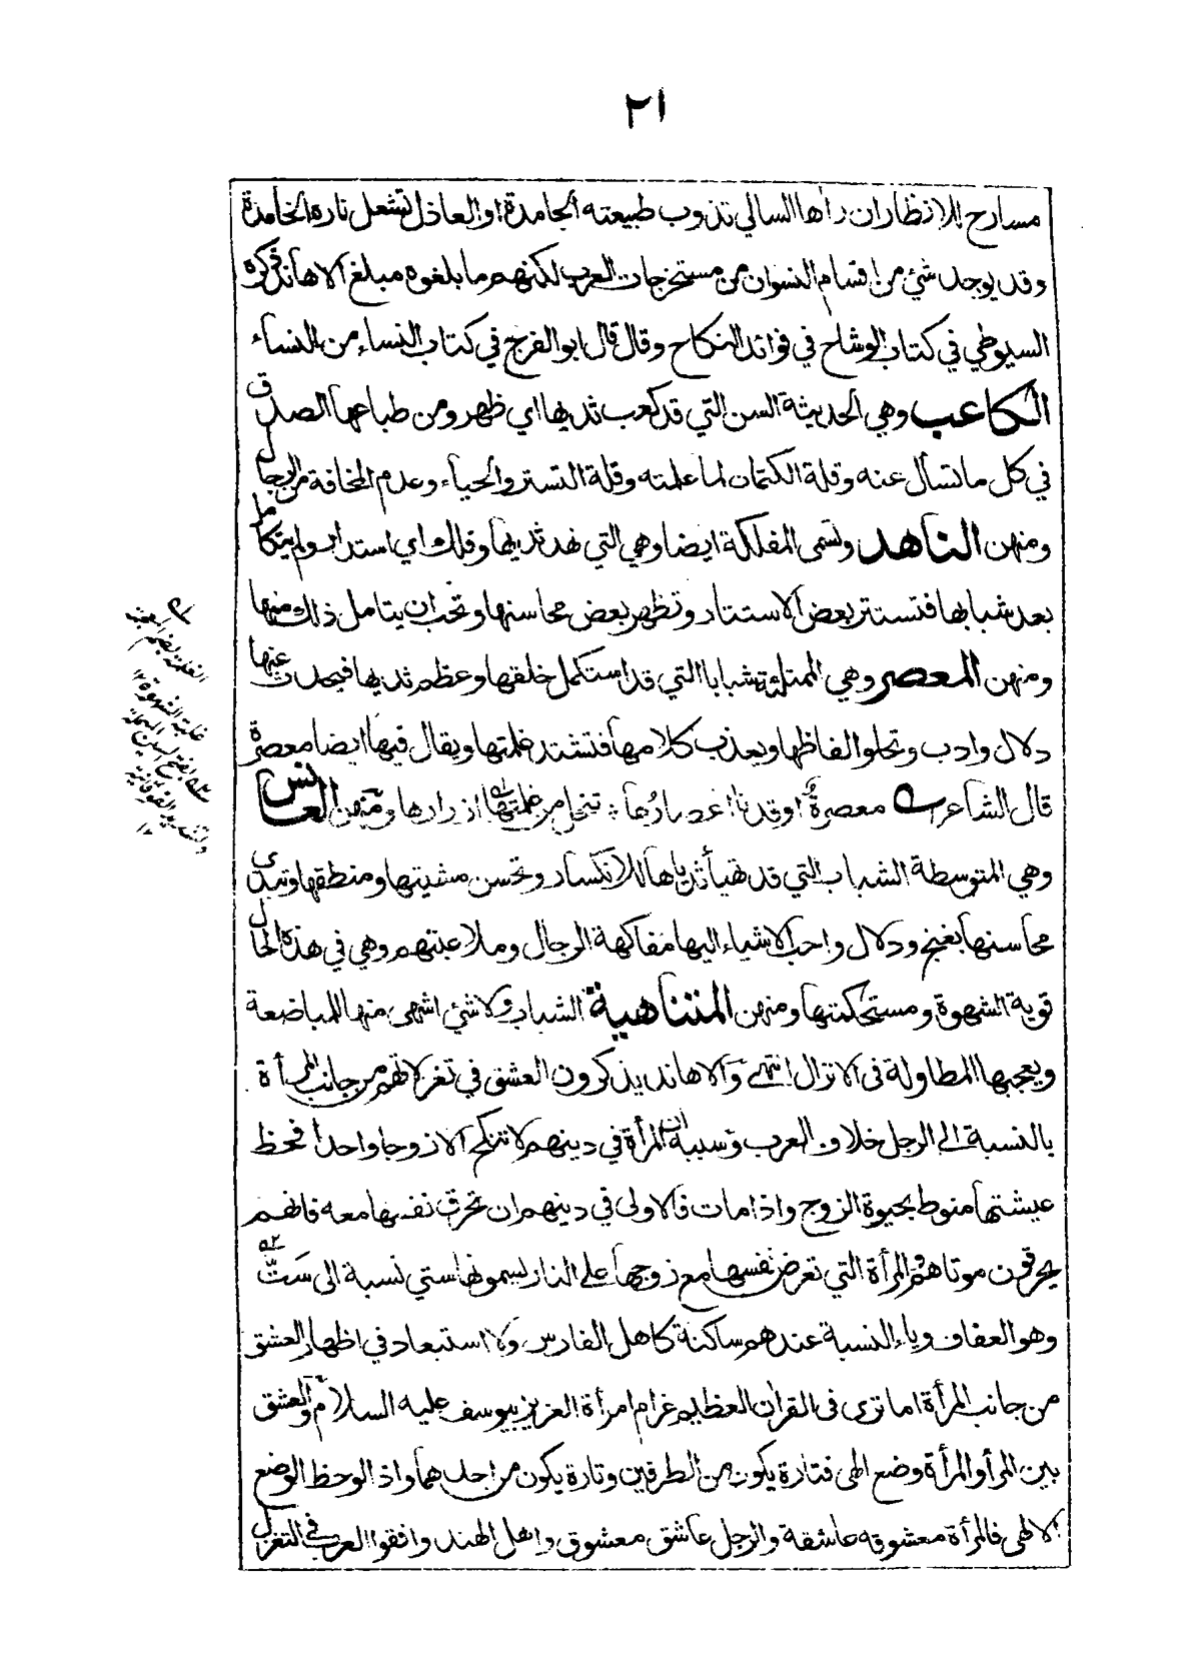 ٢١
مسارح للانظار ان رأها السالي تذوب طبيعته الجامدة او العاذل تشعل ناره الخامدة
وقد يوجد شئ من اقسام النسوان من مستخرجات العرب لكنهم ما بلغوه مبلغ الاهاند ذكره
السيوطي في كتاب الوشاح في فوائد النكاح وقال قال ابو الفرج في كتاب النساء من النساء
الكاعب وهي الحديثة السن التي قد كعب ثديها اي ظهر ومن طباعها الصدق
في كل ما تسأل عنه وقلة الكتمان لما علمته وقلة التستر والحياء وعدم المخافة من الرجال
ومنهن الناهد وتسمى المفلكة ايضا وهي التي نهد ثديها وفلك اي استدار ولم يتكامل
بعد شبابها فتستتر بعض الاستتار وتظهر بعض محاسنها وتحب ان يتامل ذلك منها
ومنهن المعصر وهي الممتلئة شبابا التي قد استكمل خلقها وعظم ثديها فيحدث عنها
دلال وادب وتحلو الفاظها ويعذب كلامها فتشتد غلمتها ويقال فيها ايضا معصرة
قال الشاعر معصرة او قد دنا اعصارها تنحل من غلمتها ازرارها ومنهن العانس
وهي المتوسطة الشباب التي قد تهيأ ثدياها للانكسار وتحسن مشيتها ومنطقها وتبدي
محاسنها بغنج ودلال واحب الاشياء اليها مفاكهة الرجال وملاعبتهم وهي في هذه الحال
قوية الشهوة ومستحكمتها ومنهن المتناهية الشباب ولا شئ اشهى منها للمباضعة
ويعجبها المطاولة فى الانزال انتهى والاهاند يذكرون العشق في تغزلاتهم من جانب المرأة
بالنسبة الى الرجل خلاف العرب وسببه ان المرأة في دينهم لا تنكح الا زوجا واحدا فحظ
عيشتها منوط بحيوة الزوج واذا مات فالاولى في دينهم ان تحرق نفسها معه فانهم
يحرقون موتاهم والمرأة التي تعرض نفسها مع زوجها على النار يسمونها ستي نسبة الى سَتّ ٥٢
وهو العفاف وياء النسبة عندهم ساكنة كاهل الفارس ولا استبعاد في اظهار العشق
من جانب المرأة اما ترى فى القران العظيم غرام امرأة العزيز بيوسف عليه السلام والعشق
بين المرأ والمرأة وضع الهى فتارة يكون من الطرفين وتارة يكون من احدهما واذا لوحظ الوضع
الالهى فالمرأة معشوقه عاشقة والرجل عاشق معشوق واهل الهند وافقوا العرب في التغزل
الغلمة بضم المعجمة
غلبة الشهوة ١٢
بفتح السين المهملة
وتشديد الفوقانية
١٢